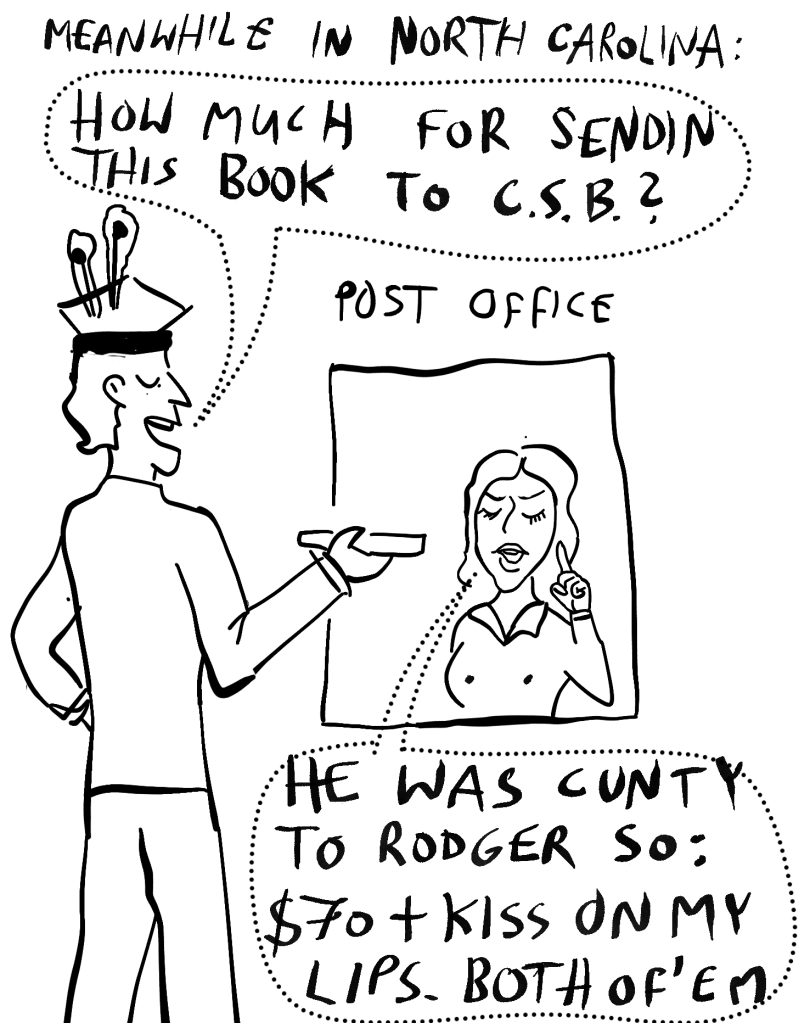 MEANWHILE IN NORTH CAROLINA:
HOW MUCH FOR SENDIN
THIS BOOK TO C.S.B.?
POST OFFICE
HE WAS CUNTY
TO RODGER SO:
$70 + KISS ON MY
LIPS. BOTH OF'EM